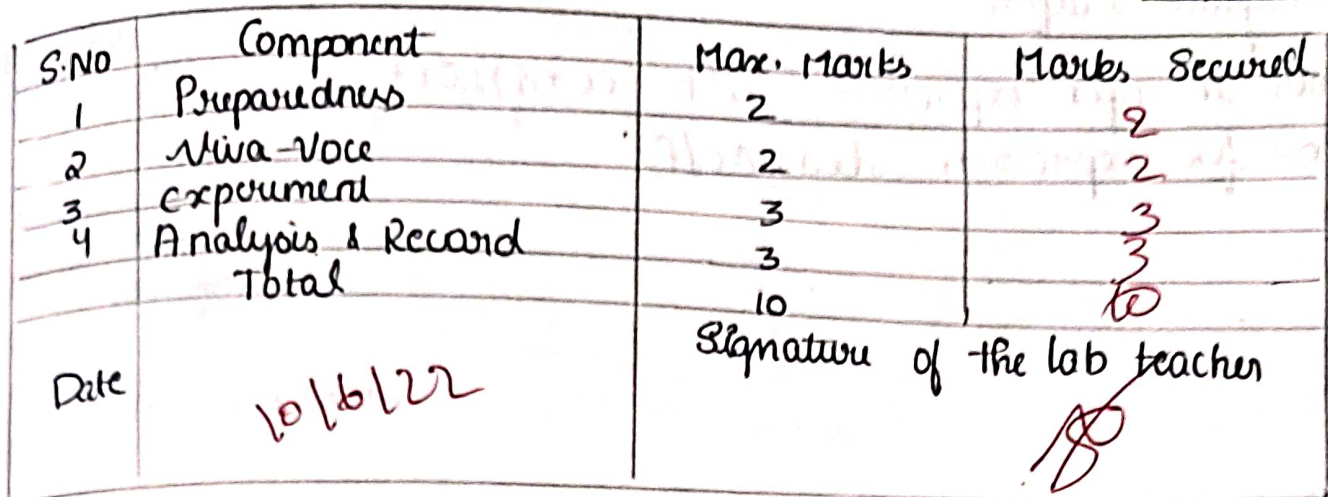 S.NO Component Max. Marks Marks Secured
1 Preparedness 2 2
2 Viva-Voce 2 2
3 experiment 3 3
4 Analysis & Record 3 3
Total 10 10
Signature of the lab teacher
Date 10/6/22